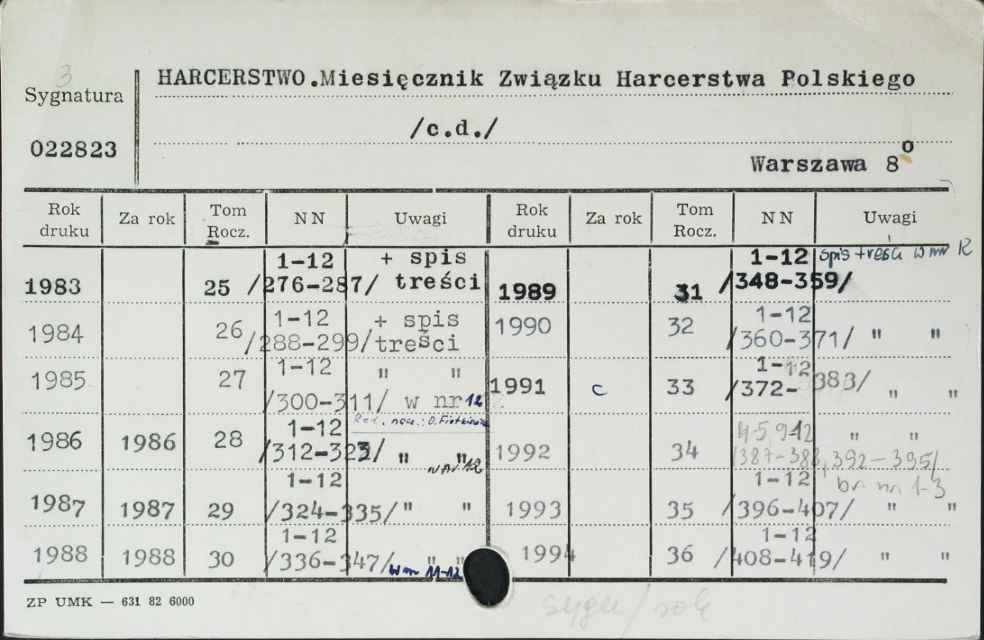 3
Sygnatura
022823
HARCERSTWO.Miesięcznik Związku Harcerstwa Polskiego
/c.d./
Warszawa 8o
Rok druku Za rok Tom Rocz. NN Uwagi Rok druku Za rok Tom Rocz. NN Uwagi
1983 25 1-12 /276-287/ + spis treści 1989 31 1-12 /348-359/ spis treści w nr 12
1984 26 1-12 /288-299/ + spis treści 1990 32 1-12 /360-371/ " "
1985 27 1-12 /300-311/ " " w nr 12 1991 c 33 1-12 /372-383/ " "
1986 1986 28 1-12 /312-323/ Red. nacz.: " " w nr 12 1992 34 4-5, 9-12 /387-388, 392-395/ " " br. nr 1-3
1987 1987 29 1-12 /324-335/ " " 1993 35 1-12 /396-407/ " "
1988 1988 30 1-12 /336-347/ " " w nr 11-12 1994 36 1-12 /408-419/ " "
ZP UMK — 631 82 6000
sygn/rok